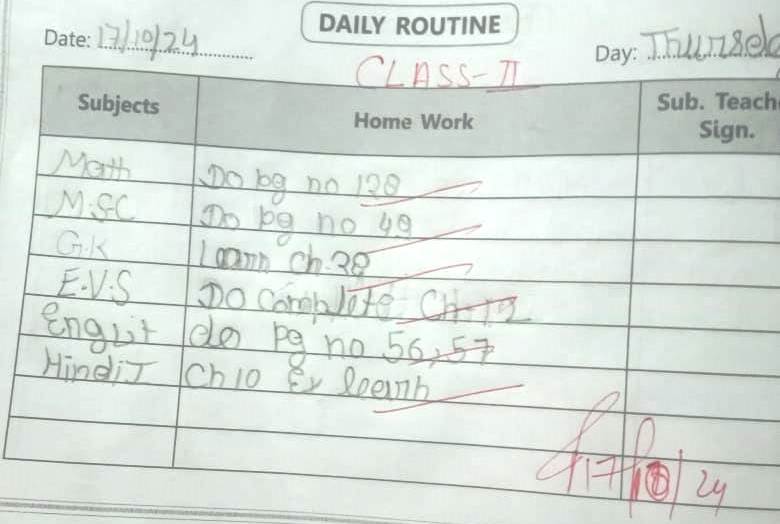 DAILY ROUTINE
Date: 17/10/24
Day: Thursda
CLASS-II
Subjects Home Work Sub. Teach
Sign.
Math Do pg no 128
M.SC Do pg no 49
G.K Learn Ch.28
E.V.S Do Complete Ch-12
Englit do pg no 56,57
Hindi I Ch 10 Ex learn
17/10/24